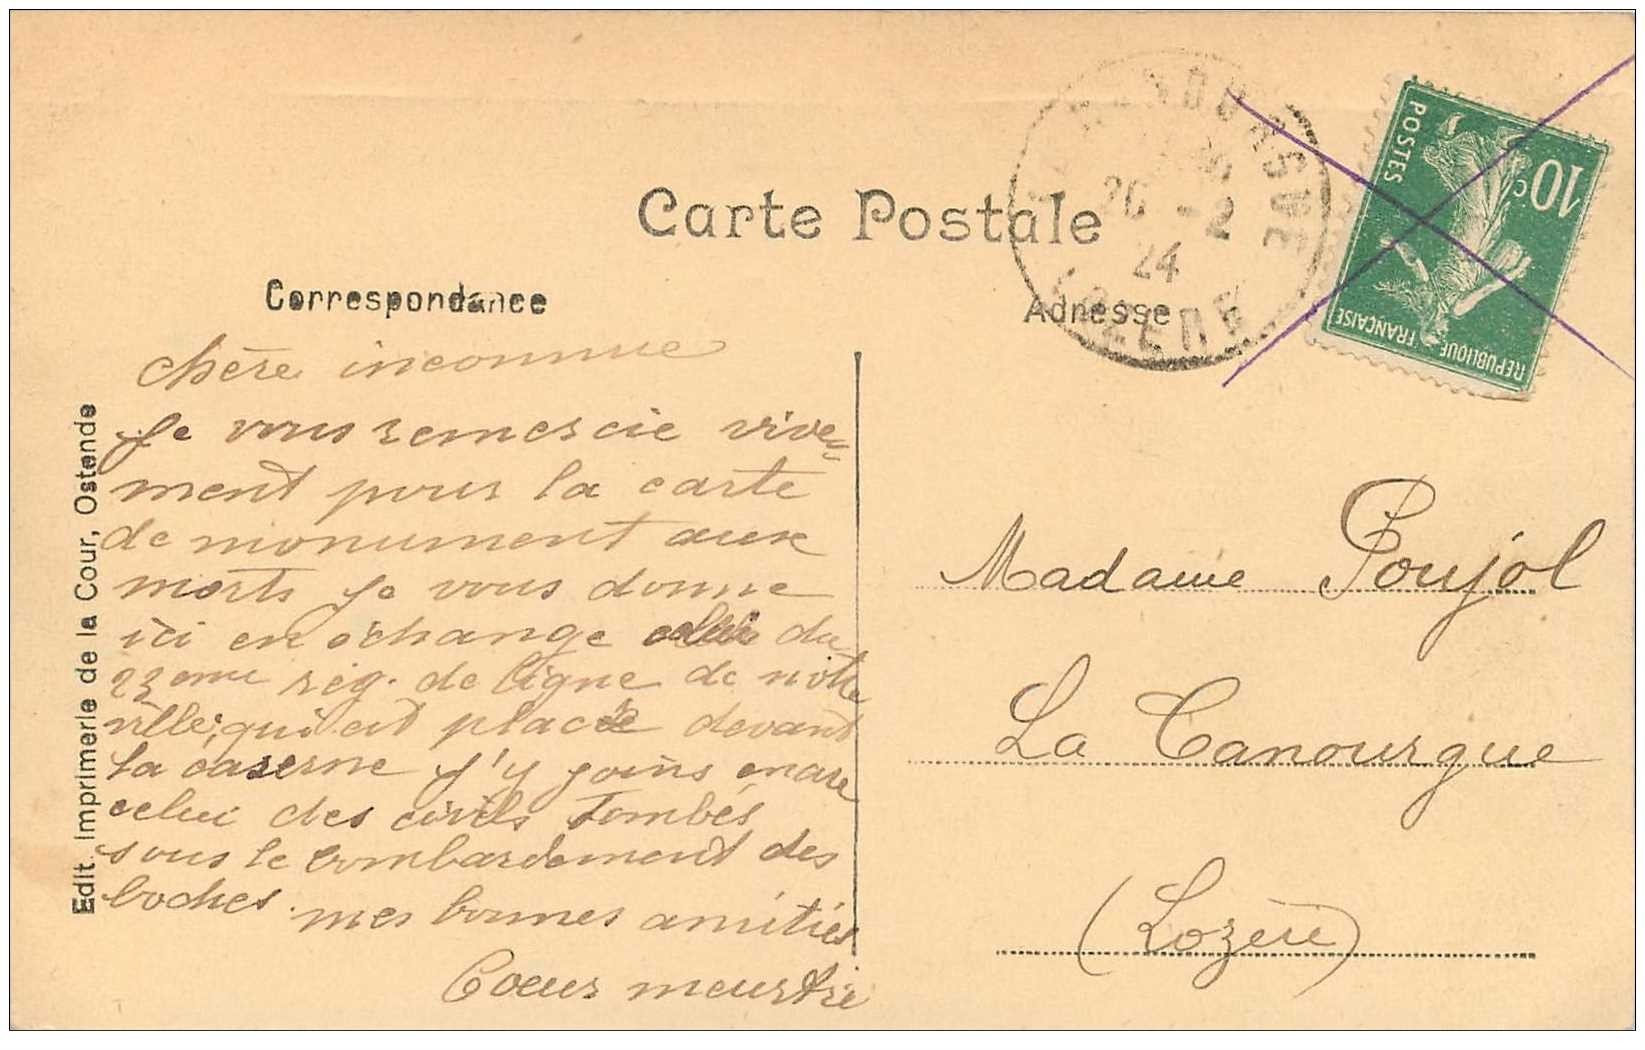 Carte Postale
Correspondance
Adresse
POSTES
10c
REPUBLIQUE FRANÇAISE
26 -2
24
LOZERE
Edit. Imprimerie de la Cour, Ostende
chère inconnue
Je vous remercie vive=
ment pour la carte
de monument aux
morts je vous donne
ici en échange celui du
23eme reg. de ligne de notre
ville, qui est placé devant
la caserne j'y joins encore
celui des civils tombés
sous le bombardement des
boches. mes bonnes amitiés
Coeur meurtrie
Madame Poujol
La Canourgue
(Lozère)